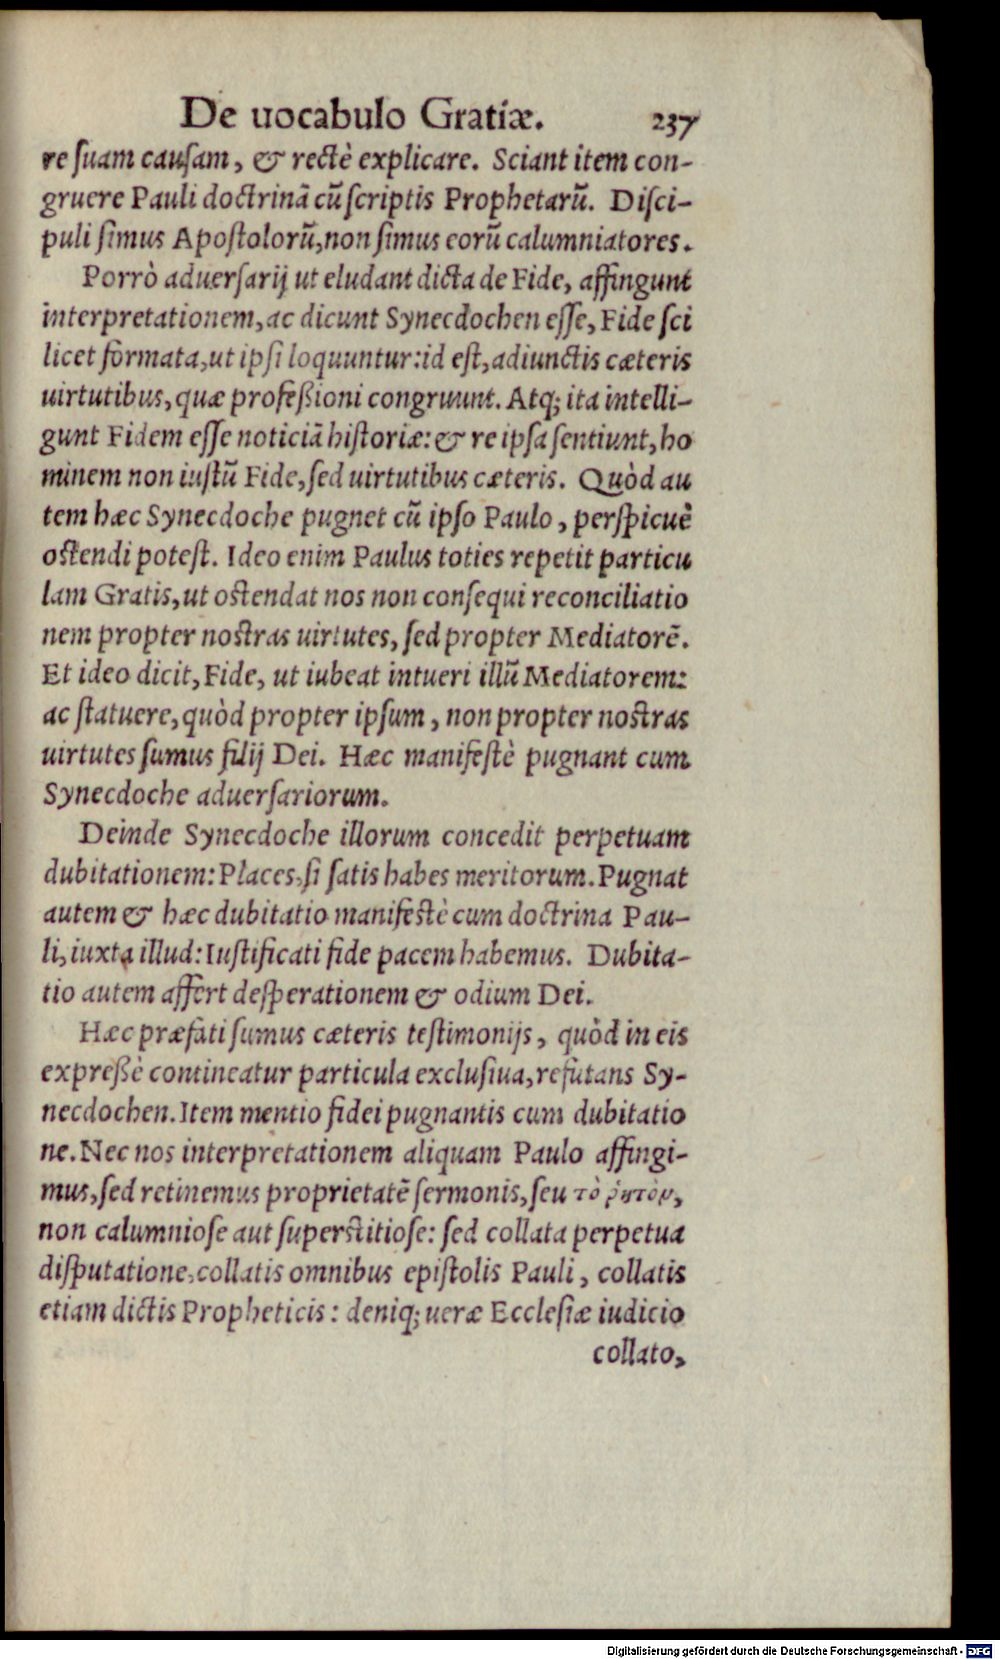 De uocabulo Gratiæ. 237
re suam causam, & rectè explicare. Sciant item con-
gruere Pauli doctrinã cũ scriptis Prophetarũ. Disci-
puli simus Apostolorũ, non simus eorũ calumniatores.
Porrò aduersarij ut eludant dicta de Fide, affingunt
interpretationem, ac dicunt Synecdochen esse, Fide sci
licet formata, ut ipsi loquuntur: id est, adiunctis cæteris
uirtutibus, quæ profeßioni congruunt. Atq; ita intelli-
gunt Fidem esse noticiã historiæ: & re ipsa sentiunt, ho
minem non iustũ Fide, sed uirtutibus cæteris. Quòd au
tem hæc Synecdoche pugnet cũ ipso Paulo, perspicuè
ostendi potest. Ideo enim Paulus toties repetit particu
lam Gratis, ut ostendat nos non consequi reconciliatio
nem propter nostras uirtutes, sed propter Mediatorẽ.
Et ideo dicit, Fide, ut iubeat intueri illũ Mediatorem:
ac statuere, quòd propter ipsum, non propter nostras
uirtutes sumus filij Dei. Hæc manifestè pugnant cum
Synecdoche aduersariorum.
Deinde Synecdoche illorum concedit perpetuam
dubitationem: Places, si satis habes meritorum. Pugnat
autem & hæc dubitatio manifestè cum doctrina Pau-
li, iuxta illud: Iustificati fide pacem habemus. Dubita-
tio autem affert desperationem & odium Dei.
Hæc præfati sumus cæteris testimonijs, quòd in eis
expreßè contineatur particula exclusiua, refutans Sy-
necdochen. Item mentio fidei pugnantis cum dubitatio
ne. Nec nos interpretationem aliquam Paulo affingi-
mus, sed retinemus proprietatẽ sermonis, seu τὸ ῥητὸν,
non calumniose aut superstitiose: sed collata perpetua
disputatione, collatis omnibus epistolis Pauli, collatis
etiam dictis Propheticis: deniq; ueræ Ecclesiæ iudicio
collato,
Digitalisierung gefördert durch die Deutsche Forschungsgemeinschaft - DFG